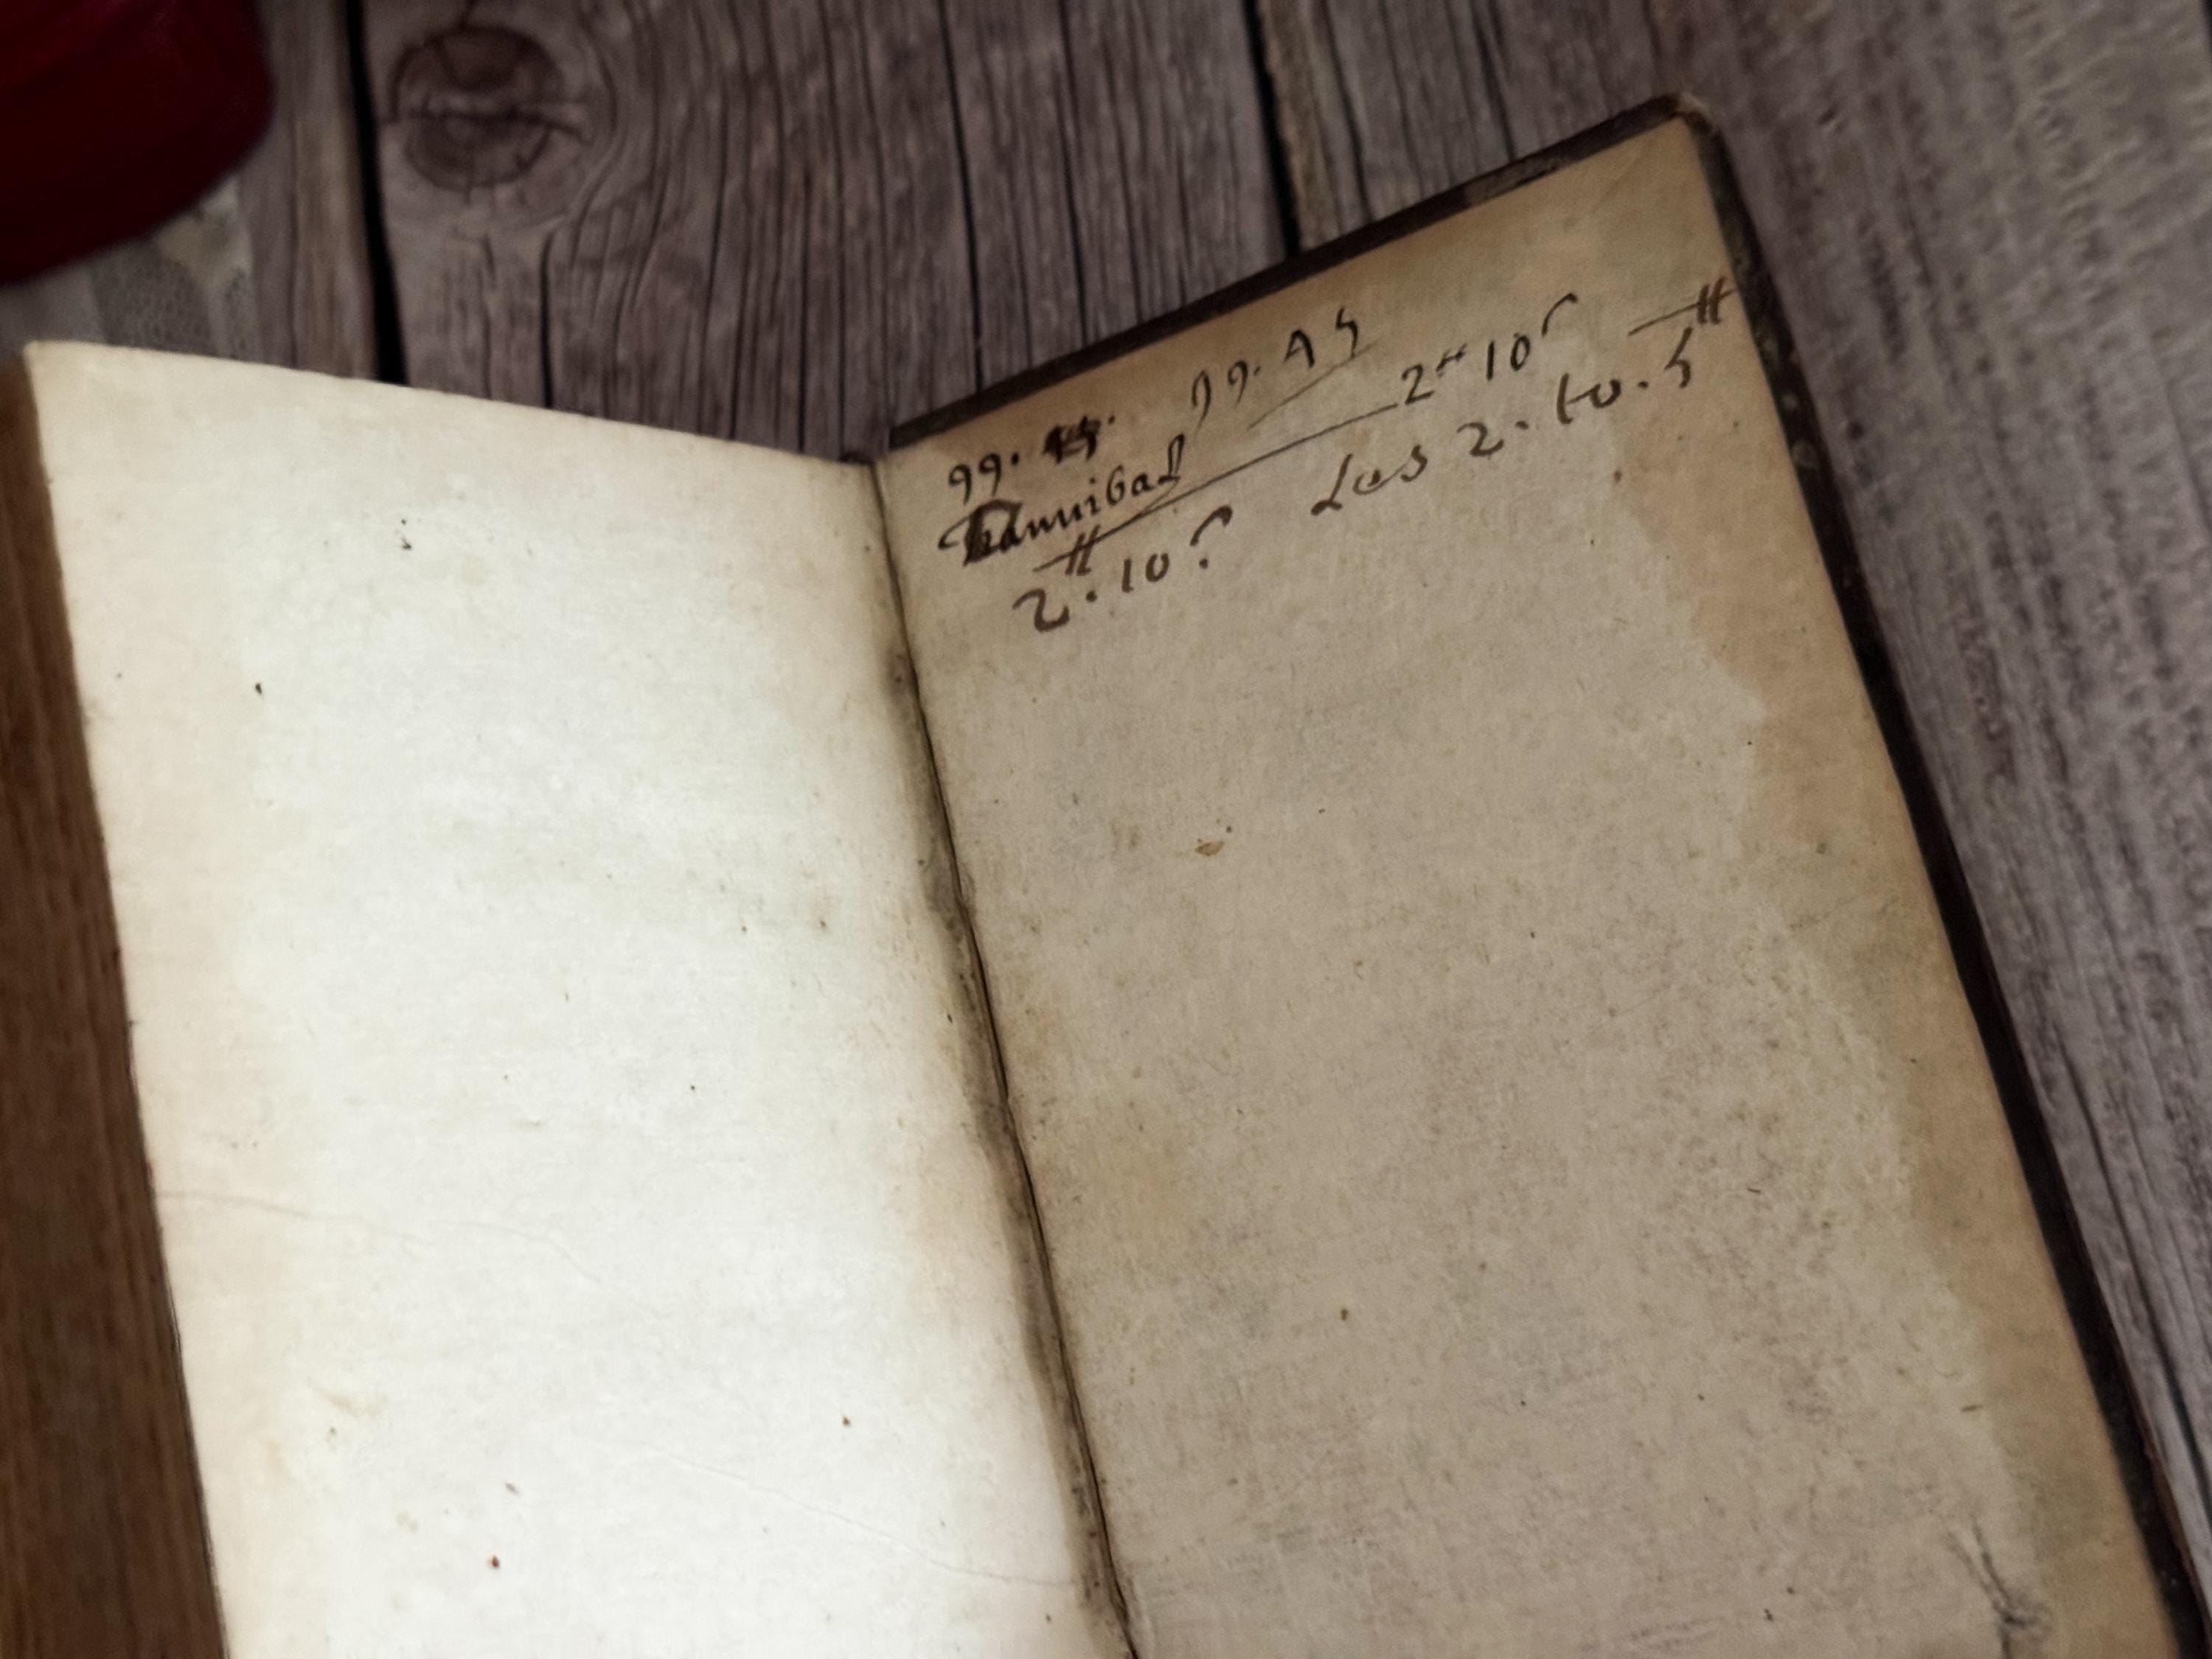 99. 99. A5
hannibal 2# 10ſ
2#. 10ſ. Les 2. to. 5#